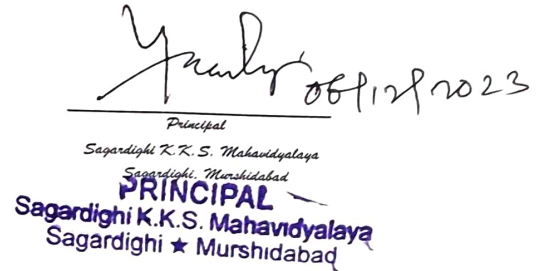 06/12/2023
Principal
Sagardighi K.K.S. Mahavidyalaya
Sagardighi, Murshidabad
PRINCIPAL
Sagardighi K.K.S. Mahavidyalaya
Sagardighi ★ Murshidabad